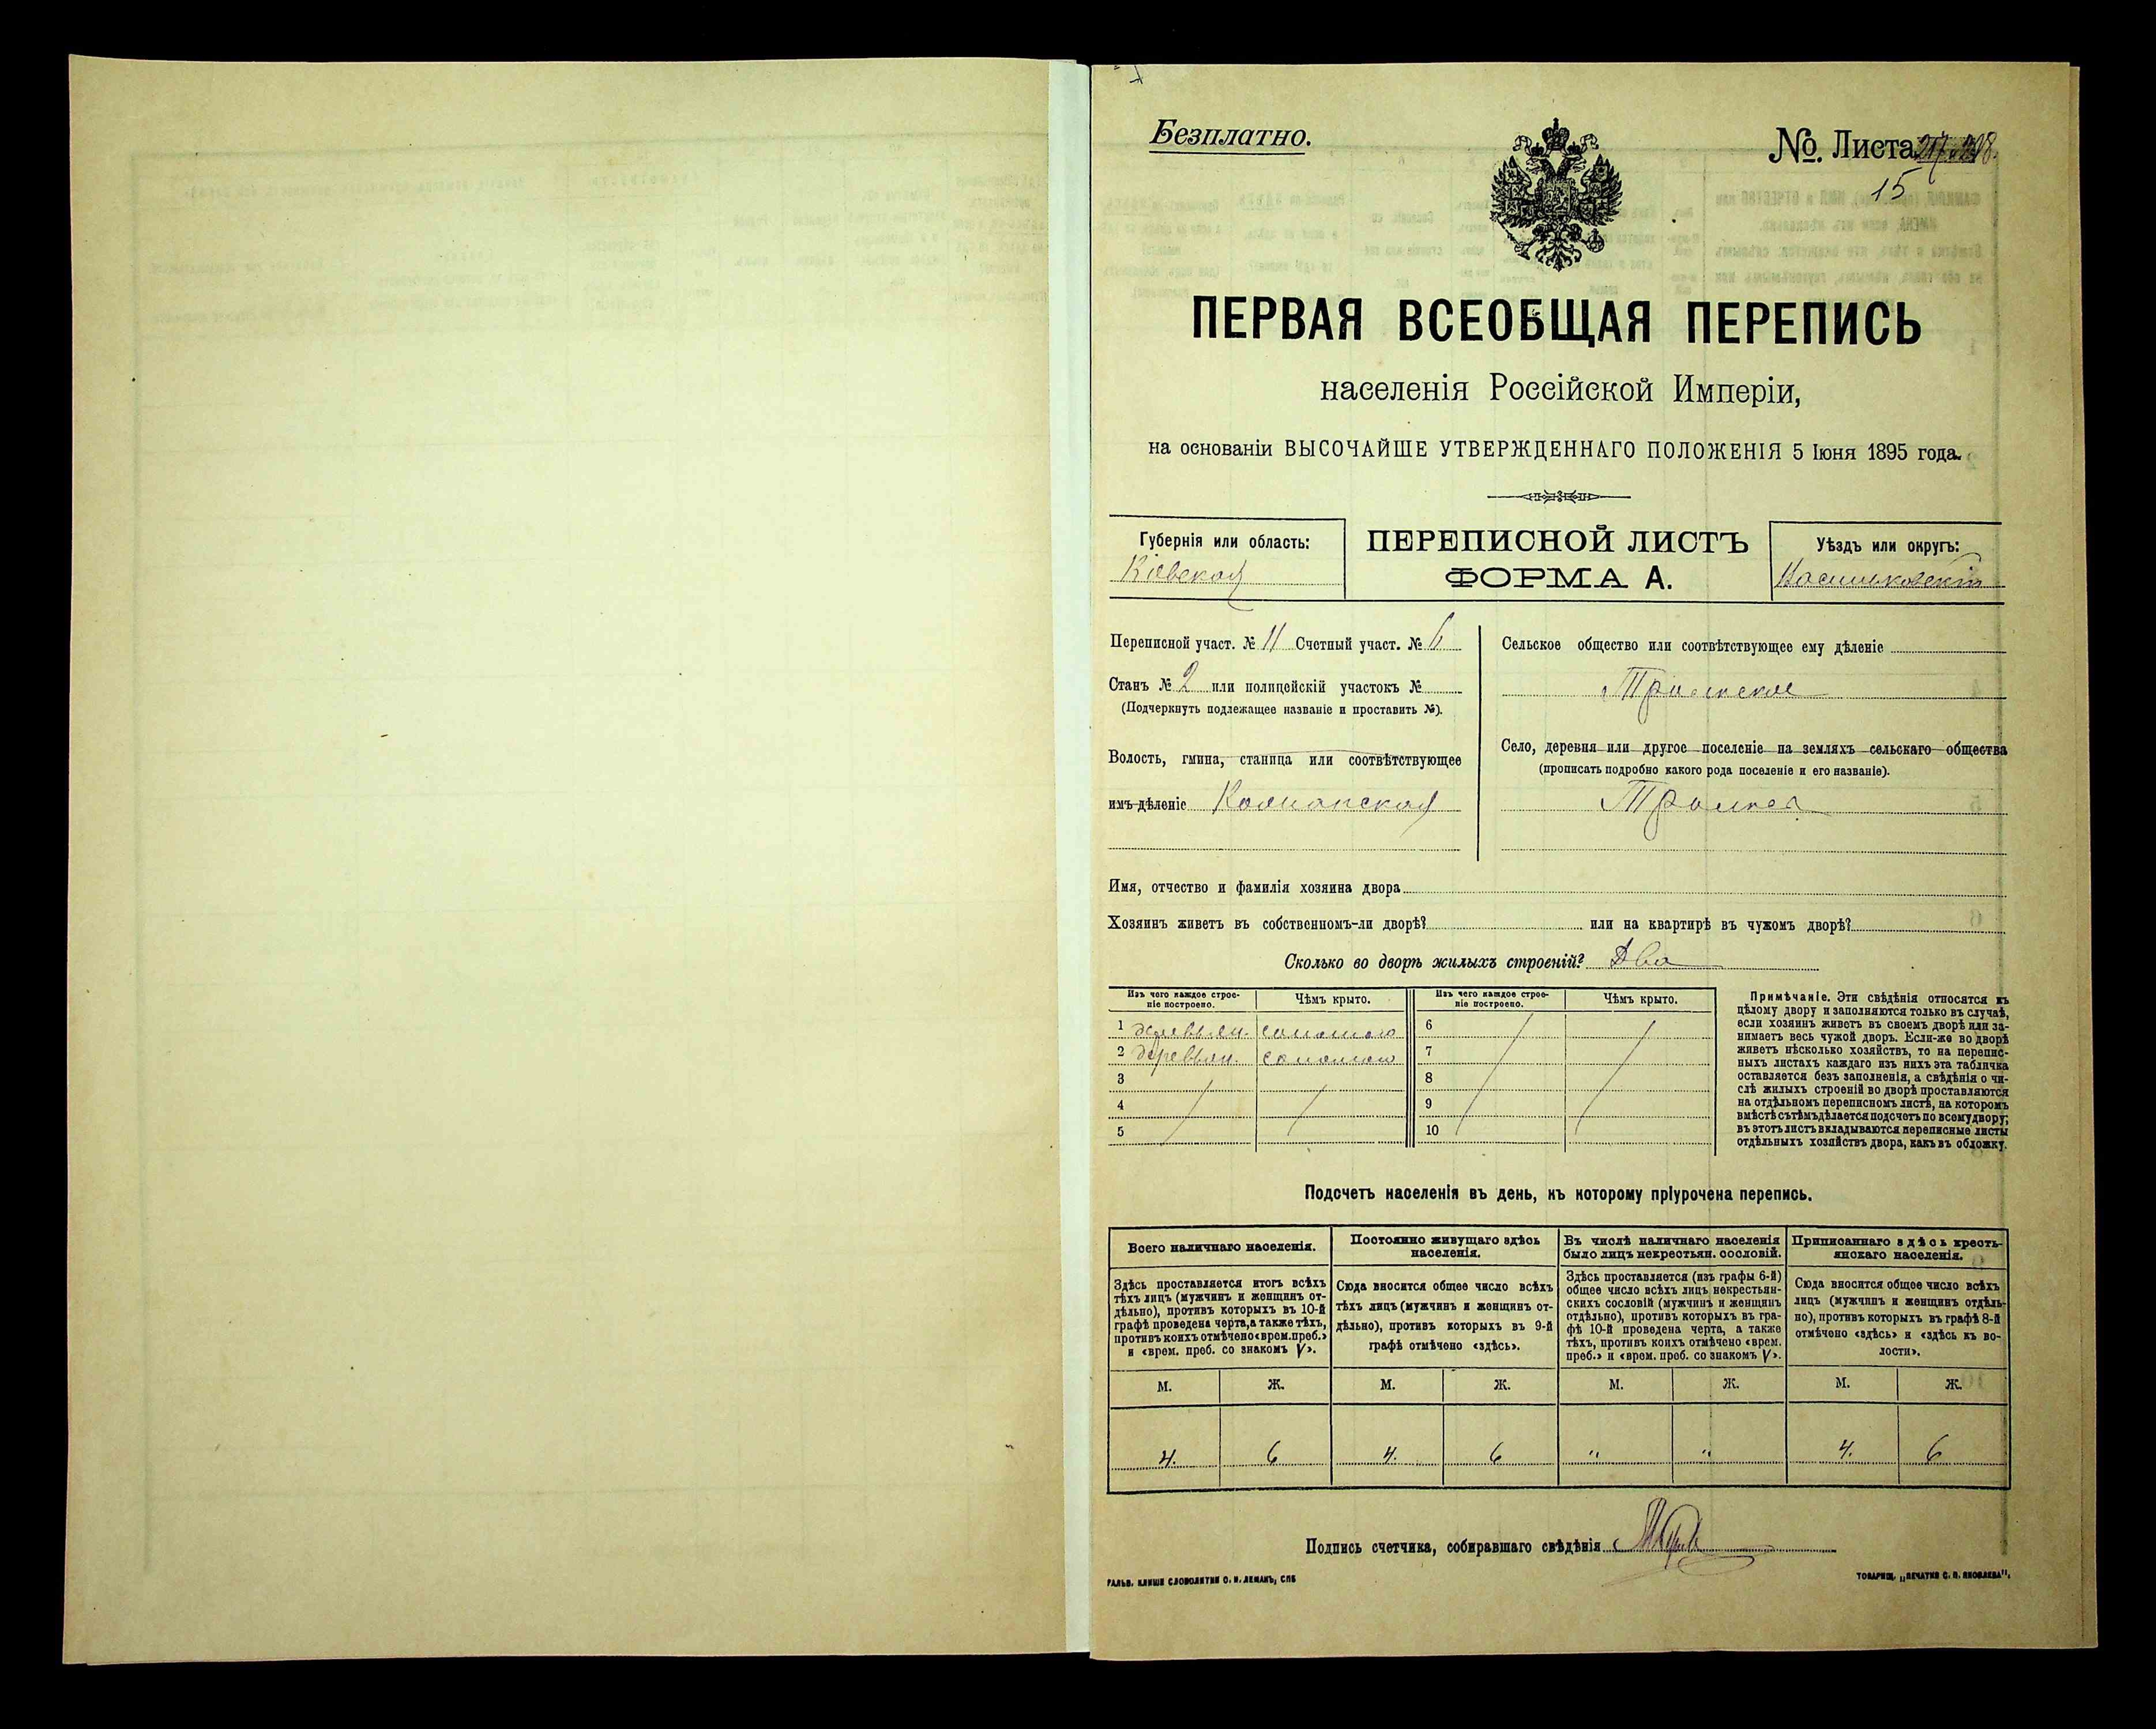 Безплатно.
№. Листа
15
ПЕРВАЯ ВСЕОБЩАЯ ПЕРЕПИСЬ
населенія Россійской Имперіи,
на основаніи ВЫСОЧАЙШЕ УТВЕРЖДЕННАГО ПОЛОЖЕНІЯ 5 Іюня 1895 года.
Губернія или область:
Кіевская
ПЕРЕПИСНОЙ ЛИСТЪ
ФОРМА А.
Уѣздъ или округъ:
Васильковскій
Переписной участ. № 11 Счетный участ. № 6
Станъ № 2 или полицейскій участокъ №
(Подчеркнуть подлежащее названіе и проставить №).
Волость, гмина, станица или соотвѣтствующее
имъ дѣленіе
Сельское общество или соотвѣтствующее ему дѣленіе
Село, деревня или другое поселеніе на земляхъ сельскаго общества
(прописать подробно какого рода поселеніе и его названіе).
Имя, отчество и фамилія хозяина двора
Хозяинъ живетъ въ собственномъ-ли дворѣ? или на квартирѣ въ чужомъ дворѣ?
Сколько во дворѣ жилыхъ строеній? Два
Изъ чего каждое строе-
ніе построено.
Чѣмъ крыто.
Изъ чего каждое строе-
ніе построено.
Чѣмъ крыто.
1 деревян. соломою 6
2 деревян. соломою 7
3 8
4 9
5 10
Примѣчаніе. Эти свѣдѣнія относятся къ
цѣлому двору и заполняются только въ случаѣ,
если хозяинъ живетъ въ своемъ дворѣ или за-
нимаетъ весь чужой дворъ. Если-же во дворѣ
живетъ нѣсколько хозяйствъ, то на перепис-
ныхъ листахъ каждаго изъ нихъ эта табличка
оставляется безъ заполненія, а свѣдѣнія о чи-
слѣ жилыхъ строеній во дворѣ проставляются
на отдѣльномъ переписномъ листѣ, на которомъ
вмѣстѣ съ тѣмъ дѣлается подсчетъ по всему двору;
въ этотъ листъ вкладываются переписные листы
отдѣльныхъ хозяйствъ двора, какъ въ обложку.
Подсчетъ населенія въ день, къ которому пріурочена перепись.
Всего наличнаго населенія.
Здѣсь проставляется итогъ всѣхъ
тѣхъ лицъ (мужчинъ и женщинъ от-
дѣльно), противъ которыхъ въ 10-й
графѣ проведена черта, а также тѣхъ,
противъ коихъ отмѣчено «врем. преб.»
и «врем. преб. со знакомъ V».
Постоянно живущаго здѣсь
населенія.
Сюда вносится общее число всѣхъ
тѣхъ лицъ (мужчинъ и женщинъ от-
дѣльно), противъ которыхъ въ 9-й
графѣ отмѣчено «здѣсь».
Въ числѣ наличнаго населенія
было лицъ некрестьян. сословій.
Здѣсь проставляется (изъ графы 6-й)
общее число всѣхъ лицъ некрестьян-
скихъ сословій (мужчинъ и женщинъ
отдѣльно), противъ которыхъ въ гра-
фѣ 10-й проведена черта, а также
тѣхъ, противъ коихъ отмѣчено «врем.
преб.» и «врем. преб. со знакомъ V».
Приписаннаго здѣсь кресть-
янскаго населенія.
Сюда вносится общее число всѣхъ
лицъ (мужчинъ и женщинъ отдѣль-
но), противъ которыхъ въ графѣ 8-й
отмѣчено «здѣсь» и «здѣсь къ во-
лости».
М. Ж. М. Ж. М. Ж. М. Ж.
4. 6 4. 6 " " 4. 6
Подпись счетчика, собиравшаго свѣдѣнія
ГАЛЬВ. КЛИШЕ СЛОВОЛИТНИ О. И. ЛЕМАНЪ, СПБ
ТОВАРИЩ. „ПЕЧАТНЯ С. П. ЯКОВЛЕВА".